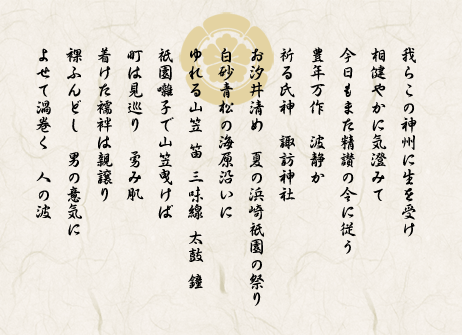 我らこの神州に生を受け
相健やかに気澄みて
今日もまた精讃の令に従う
豊年万作 波静か
祈る氏神 諏訪神社
お汐井清め 夏の浜崎祇園の祭り
白砂青松の海原沿いに
ゆれる山笠 笛 三味線 太鼓 鐘
祇園囃子で山笠曳けば
町は見巡り 勇み肌
着けた襦袢は親譲り
裸ふんどし 男の意気に
よせて渦巻く 人の波